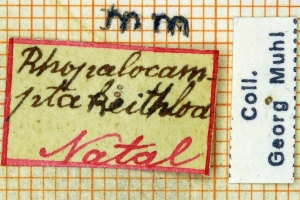 mm
Rhopalocam-
pta keithloa
Natal
Coll.
Georg Muhl